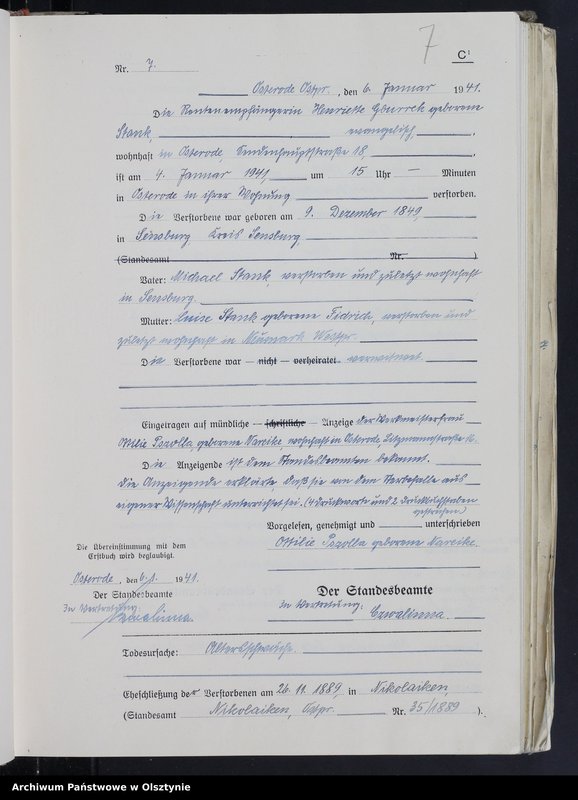 7
C¹
Nr. 7.
Osterode Ostpr., den 6. Januar 1941.
Die Rentenempfängerin Henriette Gburrek geborene
Stank, evangelisch,
wohnhaft in Osterode 18,
ist am 4. Januar 1941 um 15 Uhr — Minuten
in Osterode in ihrer Wohnung verstorben.
Die Verstorbene war geboren am 9. Dezember 1849
in Sensburg Kreis Sensburg
(Standesamt Nr. )
Vater: Michael Stank, verstorben und zuletzt wohnhaft
in Sensburg.
Mutter: Luise Stank geborene Fidrich, verstorben und
zuletzt wohnhaft in Neumark Westpr.
Die Verstorbene war — nicht — verheiratet verwitwet.
Eingetragen auf mündliche — schriftliche — Anzeige der Werkmeisterfrau
Ottilie Pszolla, geborene Nareike wohnhaft in Osterode,
Die Anzeigende ist dem Standesbeamten bekannt.
Die Anzeigende erklärte, daß sie von dem Sterbefalle aus
eigener Wissenschaft unterrichtet sei. (4 Druckworte und 2 Druckbuchstaben
gestrichen)
Vorgelesen, genehmigt und unterschrieben
Ottilie Pszolla geborene Nareike.
Die Übereinstimmung mit dem
Erstbuch wird beglaubigt.
Osterode, den 6. 1. 1941.
Der Standesbeamte
In Vertretung:
Der Standesbeamte
In Vertretung:
Todesursache: Altersschwäche.
Eheschließung der Verstorbenen am 26. 11. 1889 in Nikolaiken,
(Standesamt Nikolaiken, Ostpr. Nr. 35/1889 ).
Archiwum Państwowe w Olsztynie